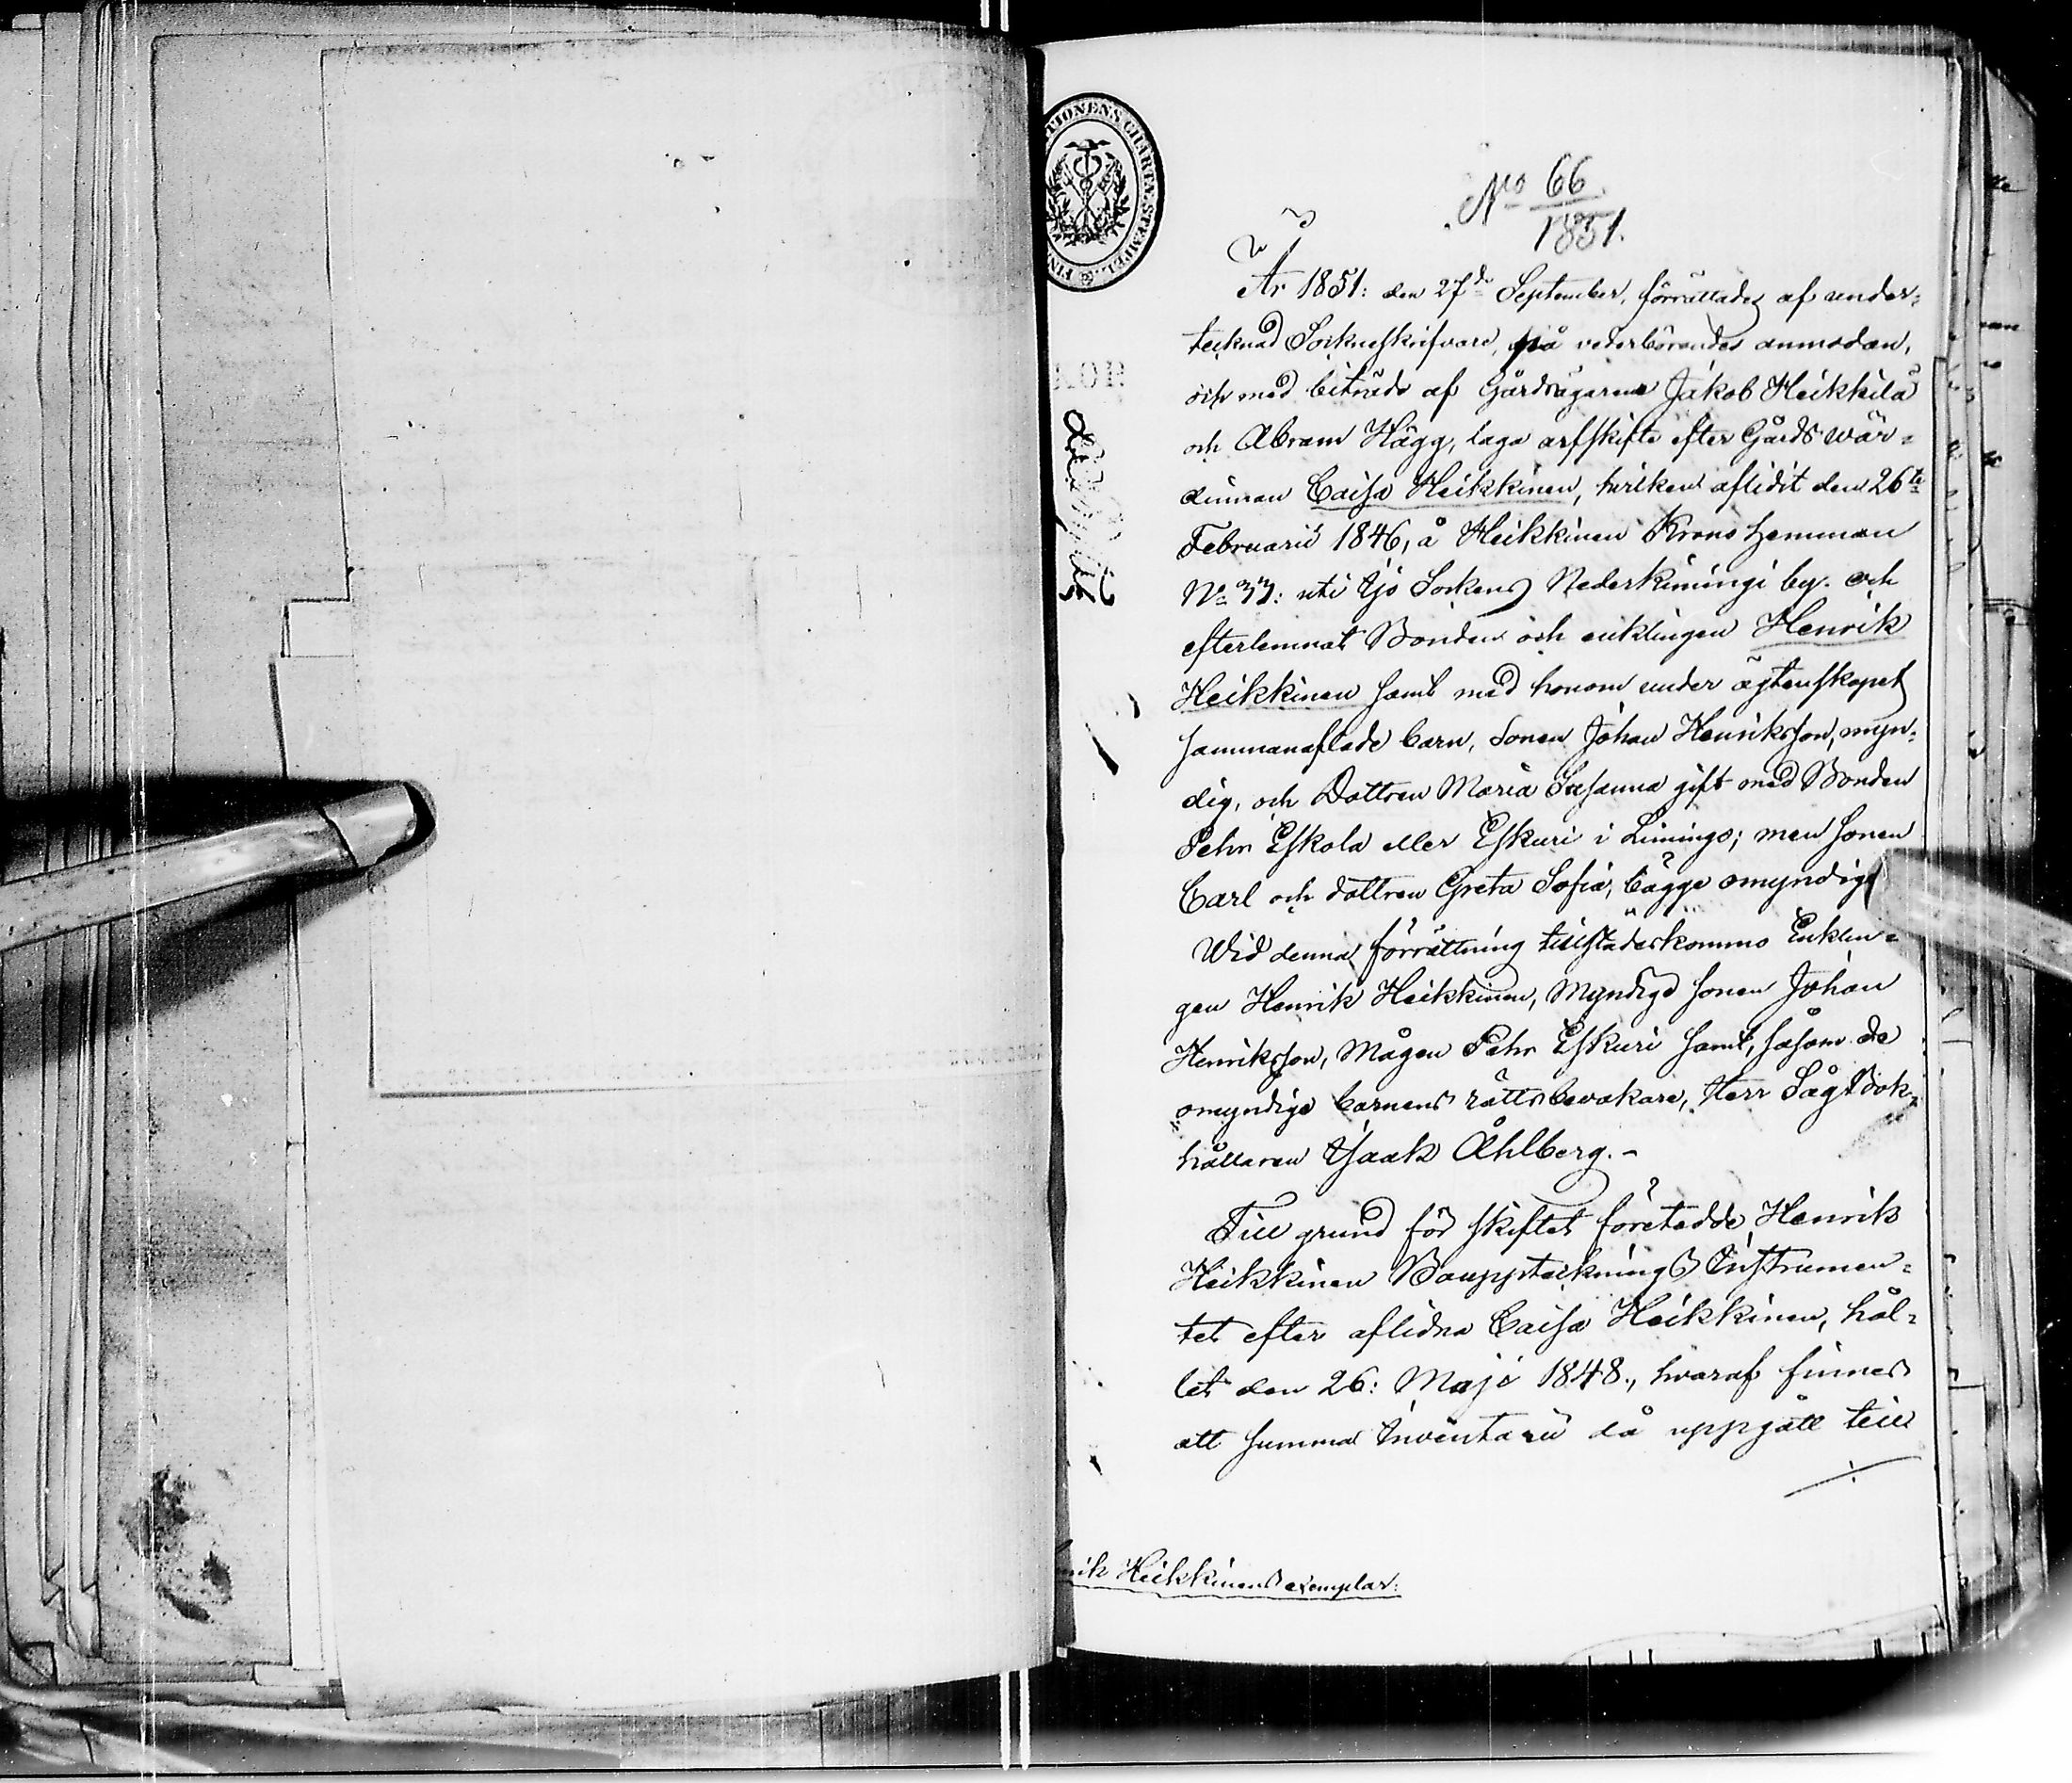 TIONENS CHARTÆ STEMPEL. FIN
No 66
1851.
År 1851: den 27de September, förrättades af under=
tecknad Sockneskrifvare, på vederbörandes anmodan,
och med biträde af Gårdsägarena Jakob Heikkilä
och Abram Hägg, laga arfskifte efter Gårds wär=
dinnan Caisa Heikkinen, hvilken aflidit den 26te
Februarii 1846, å Heikkinen Krono hemman
No 33: uti Ijo Sockens Nederkimingi by. och
efterlemnat Bonden och enklingen Henrik
Heikkinen samt med honom under ägtenskapet
sammanaflade barn, Sonen Johan Henriksson, myn=
dig, och Dottren Maria Susanna gift med Bonden
Pehr Eskola eller Eskuri i Limingo; men sonen
Carl och dottren Greta Sofia, bägge omyndige
Wid denna förrättning tillstädeskommo Enklin=
gen Henrik Heikkinen, Myndige sonen Johan
Henriksson, Mågen Pehr Eskuri samt, såsom de
omyndige barnens rättsbevakare, Herr Sågbok=
hållaren Isaak Åhlberg.-
Till grund för skiftet företedde Henrik
Heikkinen Bouppteknings Instrumen=
tet efter aflidna Caisa Heikkinen, hål=
let den 26: Maji 1848., hvaraf finnes
att summa Inventarii då uppgått till
nik Heikkinens exemplar: